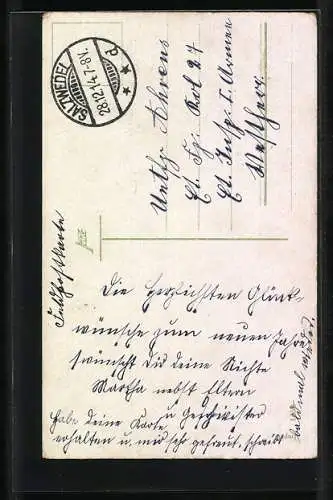 SALZWEDEL
28.12.14.7-8V.
d
Feldpostkarte
Untfz Ahrens
Et. Fz. Kol 27
Et. Insp. I. Armee
Westheer.
Die herzlichsten Glück-
wünsche zum neuen Jahre
wünscht Dir deine Nichte
Martha nebst Eltern
u Geschwister
habe deine Karte
erhalten u. mich sehr gefreut, schreibt
bald mal wieder.